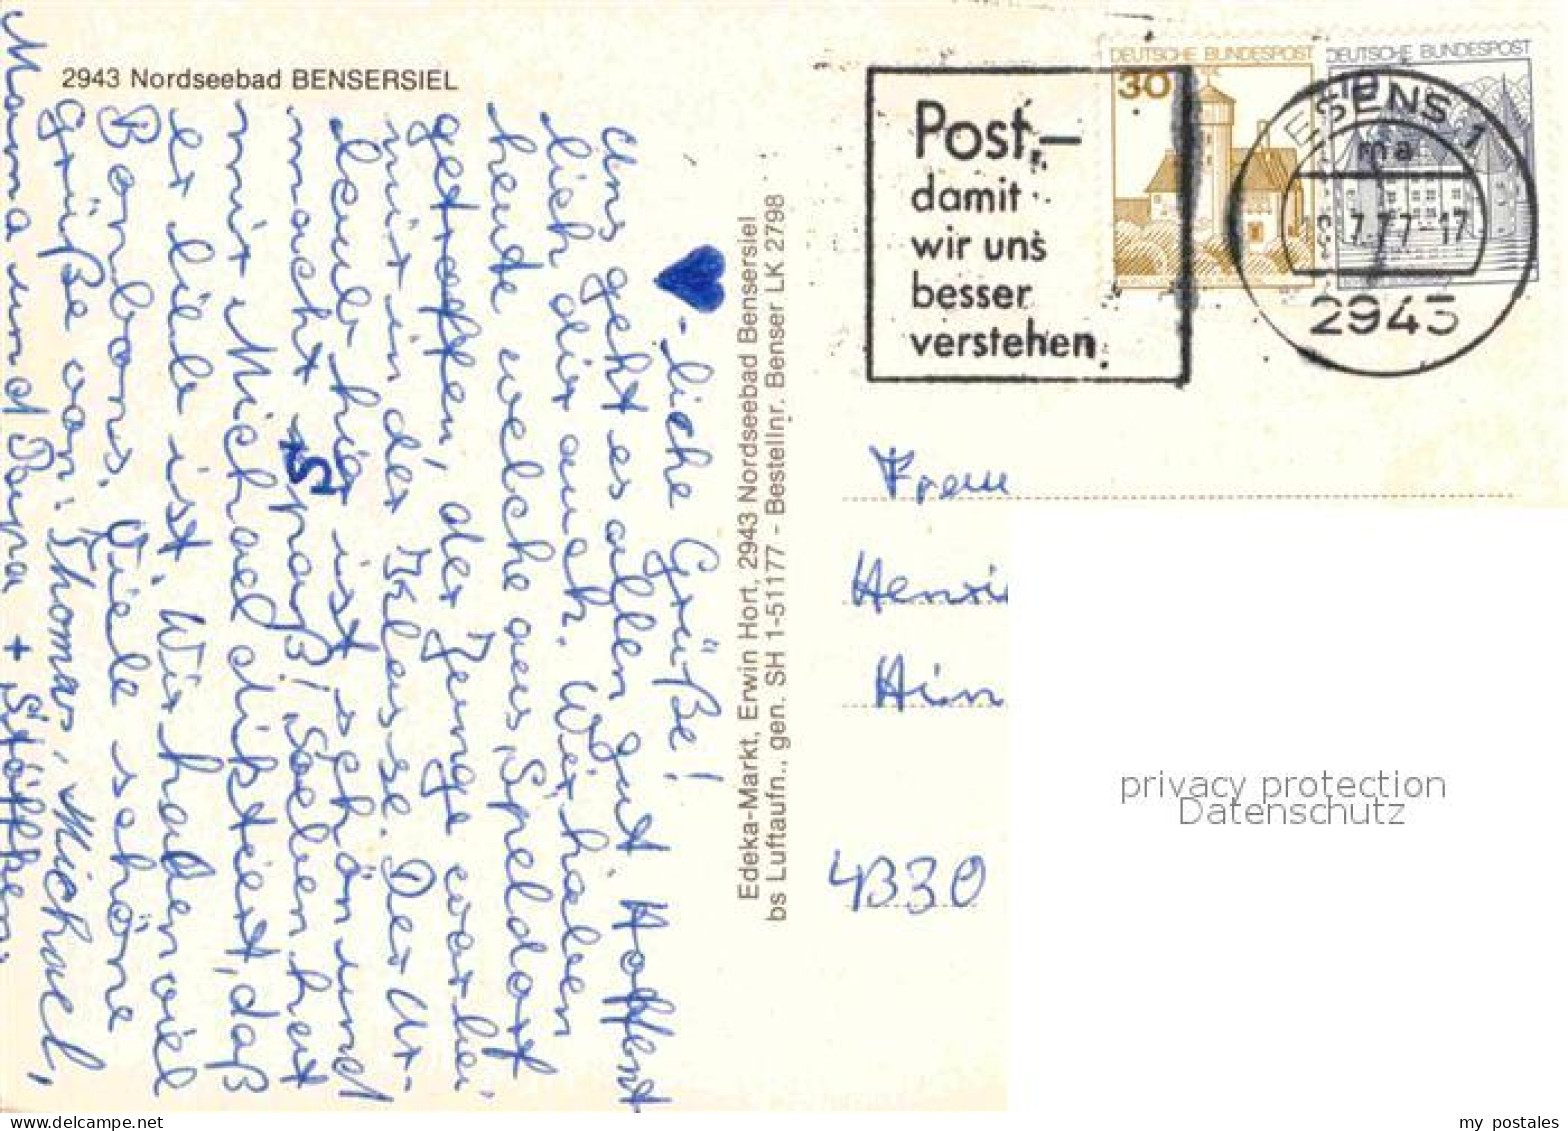 2943 Nordseebad BENSERSIEL
-liche Grüße!
Uns geht es allen gut. Hoffent
lich dir auch. Wir haben
heute welche aus Speldorf
getroffen, der Junge war bei
mir in der Klasse. Der Ur-
laub hier ist schön und
macht Spaß! Soeben hat
mir Michael diktiert, daß
er lieb ist. Wir haben viel
Bonbons. Viele schöne
Grüße von: Thomas, Michael,
Mama und Papa + Stöffken.
Edeka-Markt, Erwin Hort, 2943 Nordseebad Bensersiel
bs Luftaufn., gen. SH 1-51177 - Bestellnr. Benser LK 2798
Post –
damit
wir uns
besser
verstehen
DEUTSCHE BUNDESPOST
30
DEUTSCHE BUNDESPOST
ESENS 1
ma
7.77-17
2943
Frau
Henri
Hin
4330
privacy protection
Datenschutz
my postales